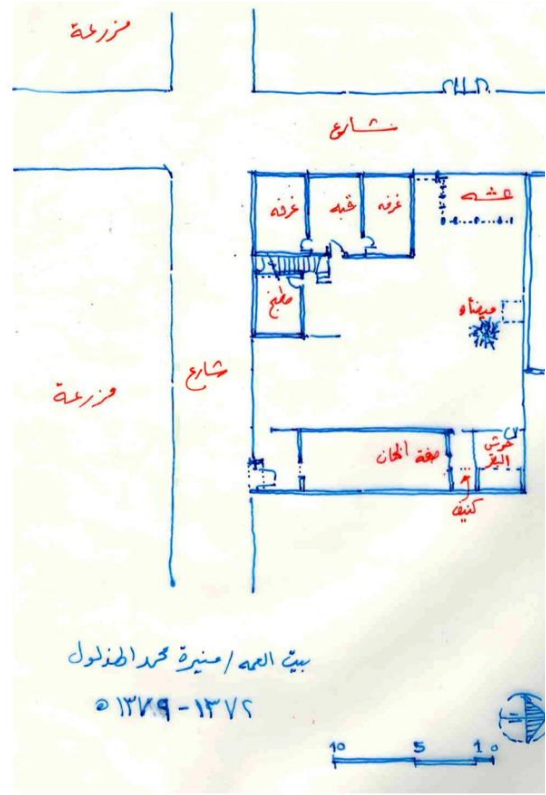 مزرعة
شارع
غرفه
قبه
غرفه
عشه
مطبخ
ميضأه
شارع
مزرعة
صفة الخان
حوش
البقر
كنيف
بيت العمه / منيرة محمد الهذلول
١٣٧٢ - ١٣٧٩ ه
10 5 1 0